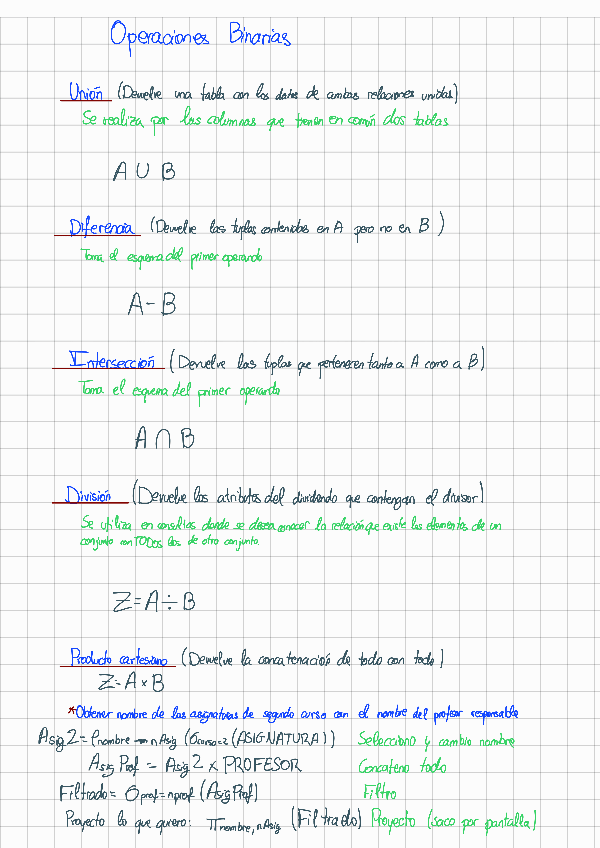 Operaciones Binarias
Unión (Devuelve una tabla con los datos de ambas relaciones unidas)
Se realiza por las columnas que tienen en común dos tablas
A ∪ B
Diferencia (Devuelve las tuplas contenidas en A pero no en B)
Toma el esquema del primer operando
A - B
Intersección (Devuelve las tuplas que pertenecen tanto a A como a B)
Toma el esquema del primer operando
A ∩ B
División (Devuelve los atributos del dividendo que contengan el divisor)
Se utiliza en consultas donde se desea conocer la relación que existe los elementos de un
conjunto con TODOS los de otro conjunto.
Z = A ÷ B
Producto cartesiano (Devuelve la concatenación de todo con todo)
Z = A × B
*Obtener nombre de las asignaturas de segundo curso con el nombre del profesor responsable
Asig2 = ρnombre→nAsig (σcurso=2 (ASIGNATURA)) Selecciono y cambio nombre
AsigProf = Asig2 × PROFESOR Concateno todo
Filtrado = σprof=nprof (AsigProf) Filtro
Proyecto lo que quiero: πnombre, nAsig (Filtrado) Proyecto (saco por pantalla)